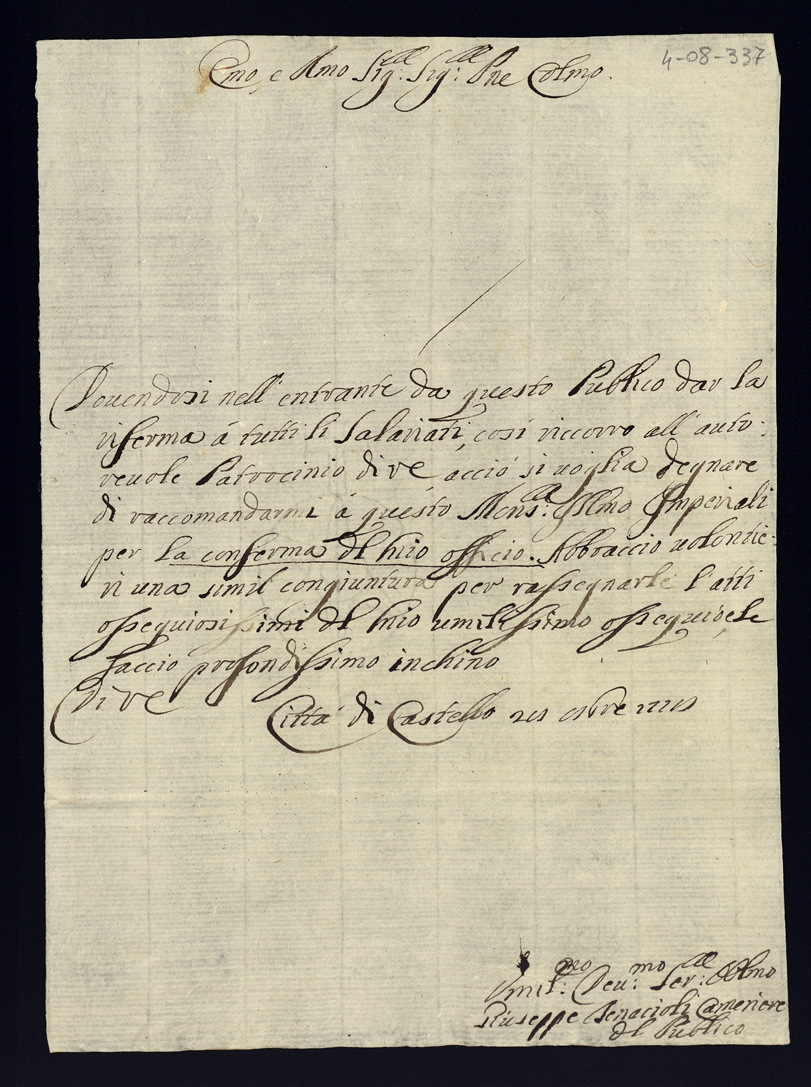 4-08-337
Emo, e Rmo Sig:re Sig:re Pne Colmo.
Douendosi nell' entrante da questo Publico dar la
riferma á tutti li Salariati, così riccorro all' auto:
reuole Patrocinio di VE, acció si uoglia degnare
di raccomandarmi á questo Mons:re Illmo Imperiali
per la conferma dl mio officio. Abbraccio uolontie:
ri una simil congiuntura per rassegnarle l' atti
ossequiosissimi dl mio umilissimo ossequio, e le
faccio profondissimo inchino
Di VE Città di Castello
Umil:mo Deu:mo Ser:re Obblmo
Giuseppe Cameriere
dl Publico